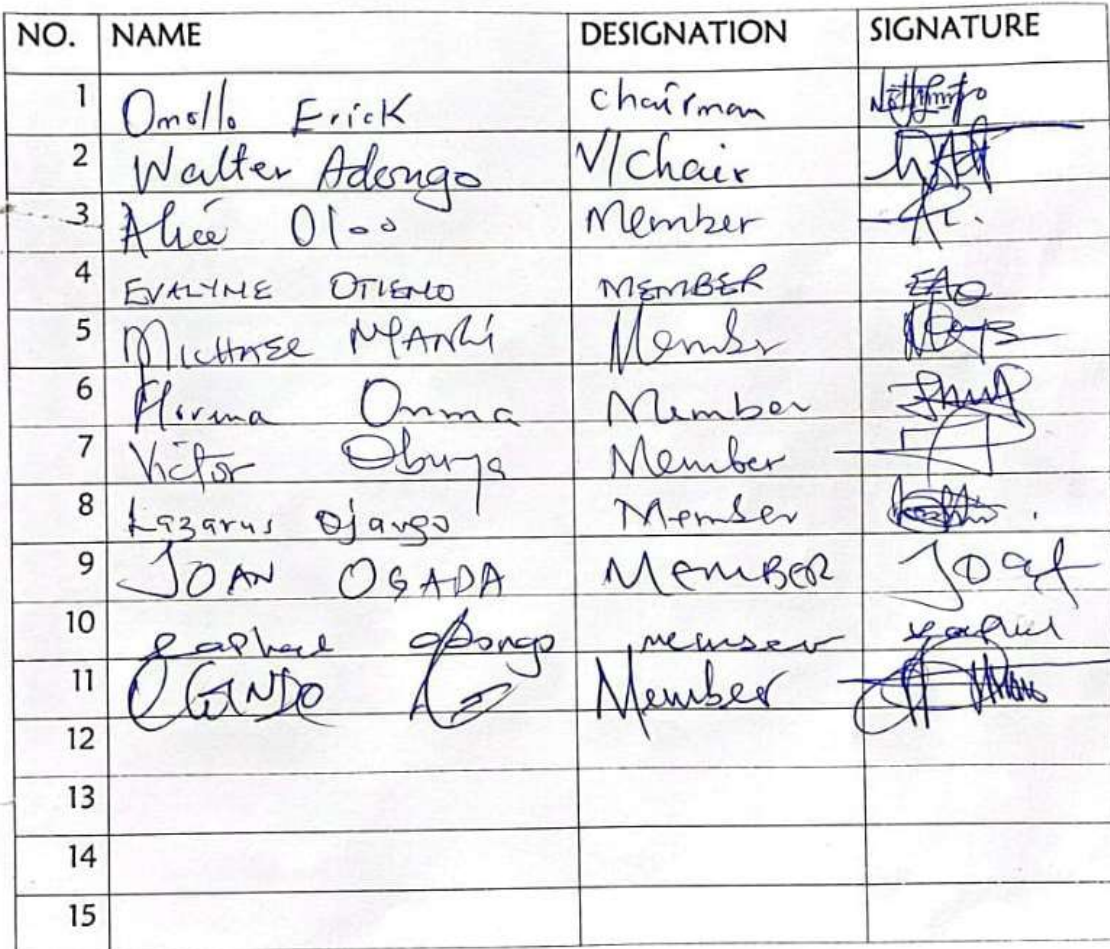 NO. NAME DESIGNATION SIGNATURE
1 Omollo Erick chairman
2 Walter Adongo V/Chair
3 Alice Oloo Member
4 EVALYNE OTIENO MEMBER EAO
5 MICHAEL Member
6 Omma Member
7 Victor Obunya Member
8 Lazarus Ojango Member
9 JOAN OGADA MEMBER
10 raphael obongo member raphael
11 OGINDO Member
12
13
14
15